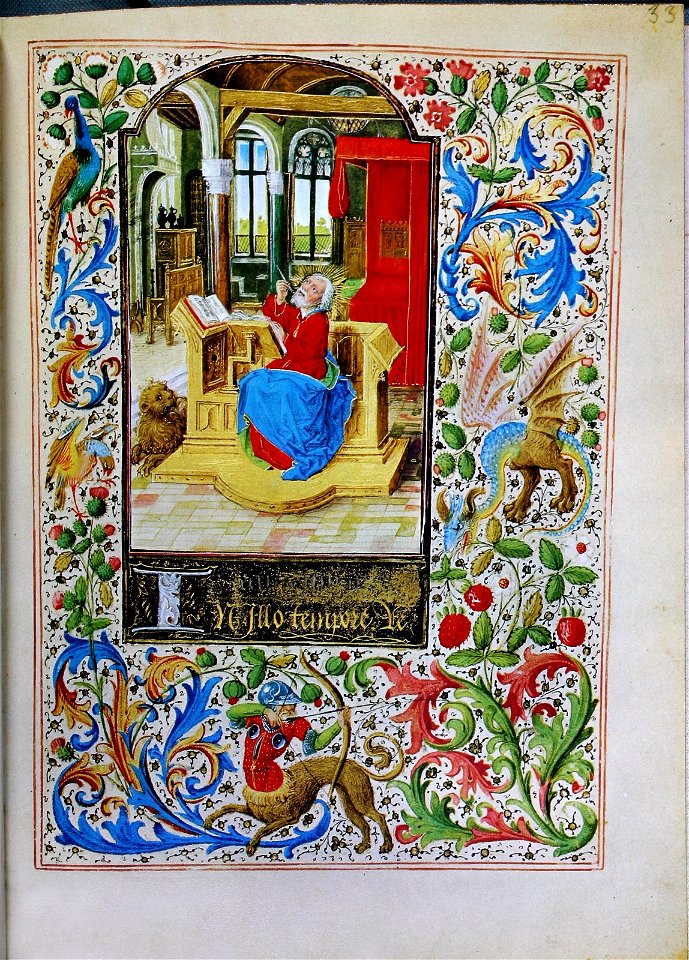 33
IN Illo tempore Re